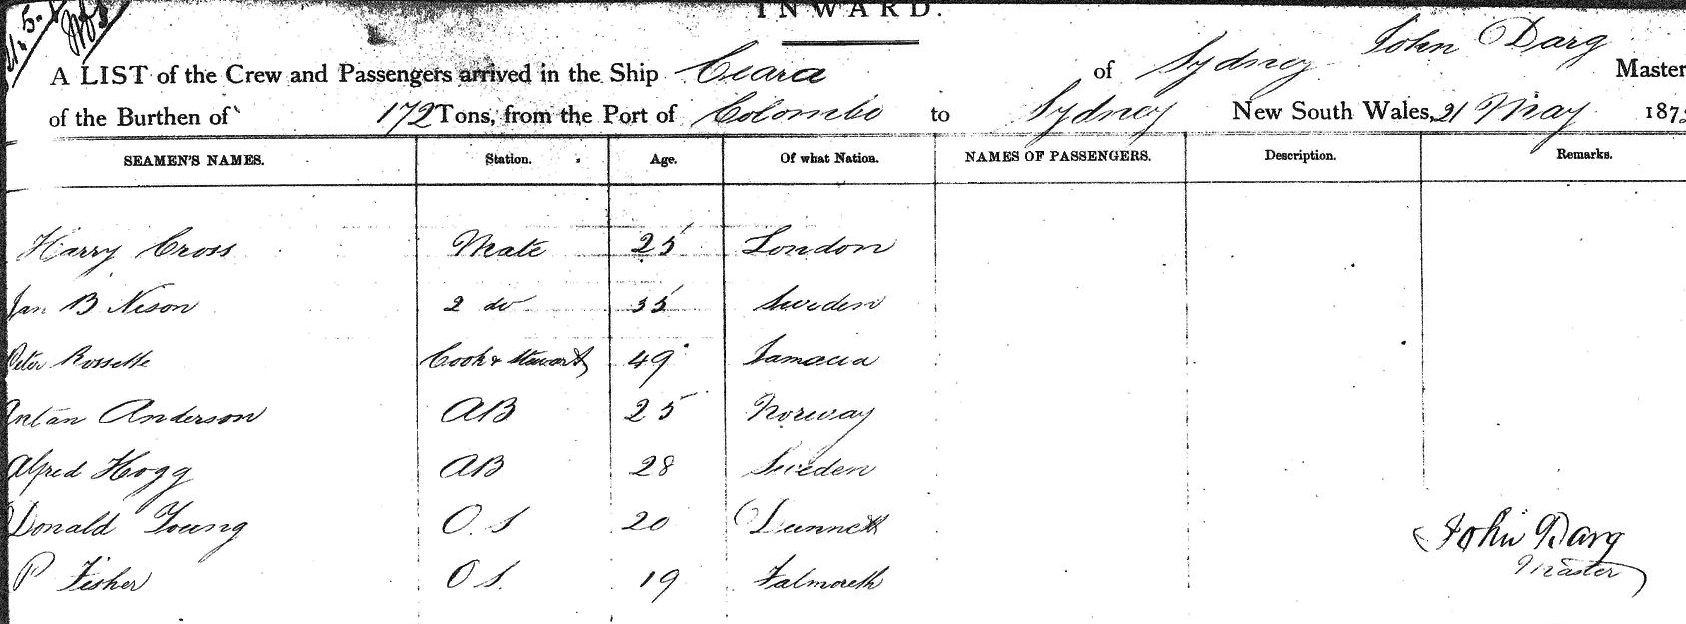 INWARD.
A LIST of the Crew and Passengers arrived in the Ship Ceara of Sydney John Darg Master
of the Burthen of 172 Tons, from the Port of Colombo to Sydney New South Wales, 21 May 187
SEAMEN'S NAMES. Station. Age. Of what Nation. NAMES OF PASSENGERS. Description. Remarks.
Harry Cross Mate 25 London
Jan B Nison 2 do 35 Sweden
Peter Rossette Cook & Steward 49 Jamacia
Antan Anderson AB 25 Norway
Alfred Hogg AB 28 Sweden
Donald Young O.S 20 Dunnett
P Fisher O S. 19 Falmoreth
John Darg
Master